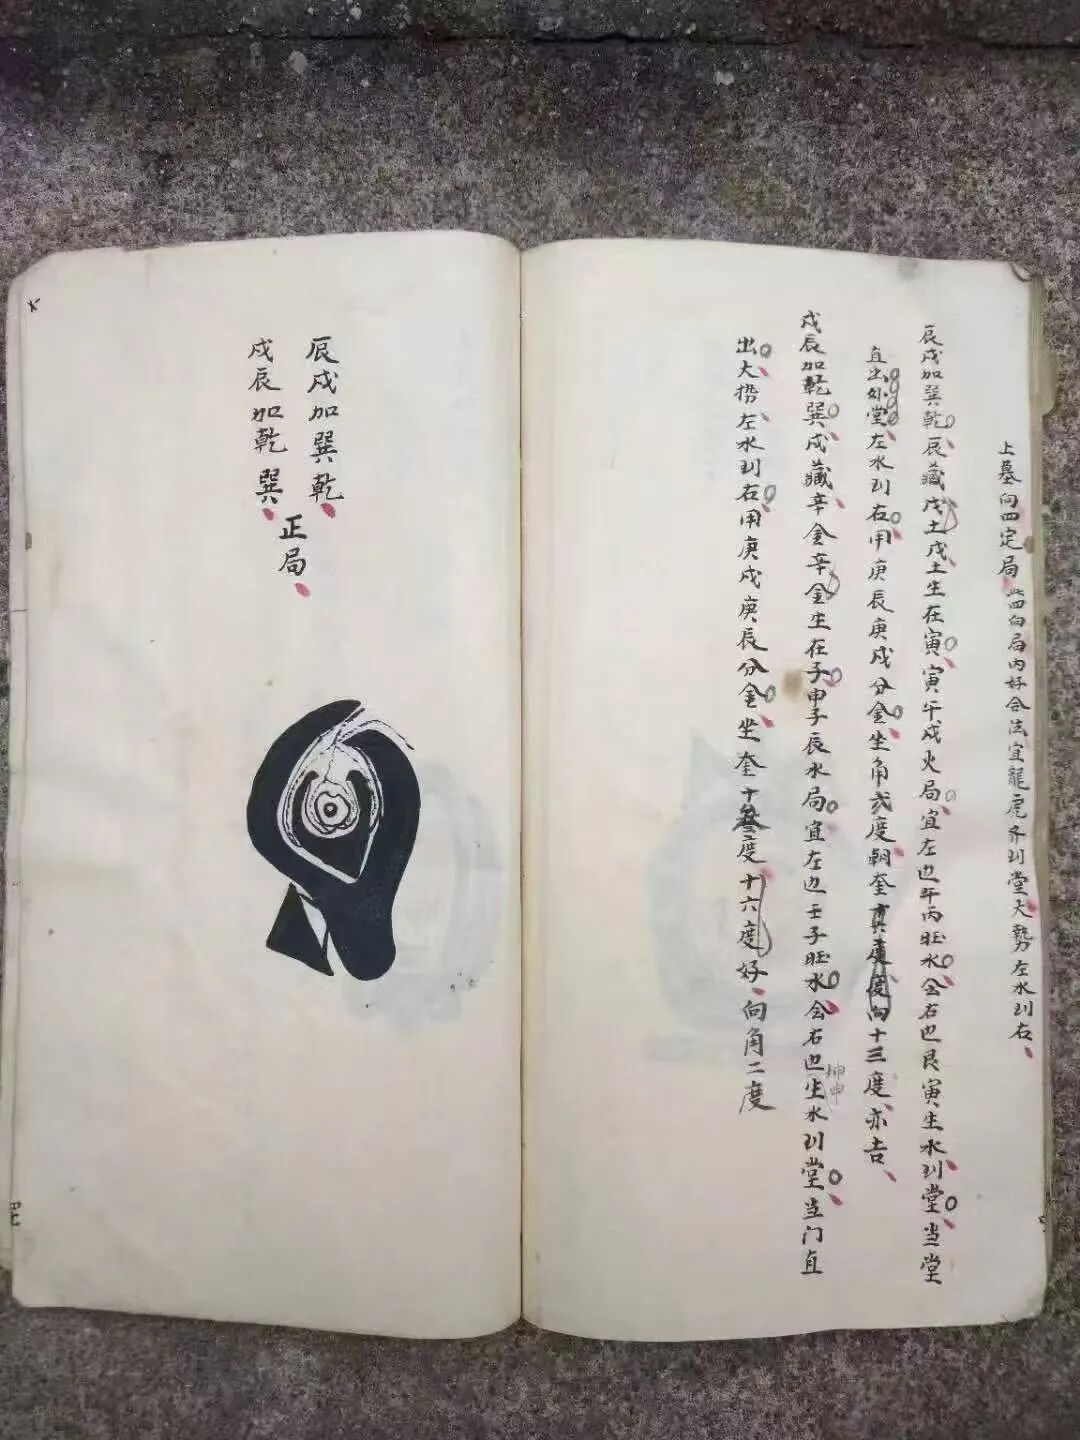 上墓向四定局 此四向局内好合法宜龍虎齐到堂大勢左水到右
辰戍加巽乾辰藏戊土戊土生在寅寅午戍火局宜左边午丙旺水会右边艮寅生水到堂当堂
直出外堂左水到右用庚辰庚戍分金坐角弍度朝奎向十三度亦吉
戍辰加乾巽戍藏辛金辛金生在子申子辰水局宜左边壬子旺水会右边生水到堂当门直
坤申
出大势左水到右用庚戍庚辰分金坐奎十叁度十六度好向角二度
辰戍加巽乾
戍辰加乾巽
正局